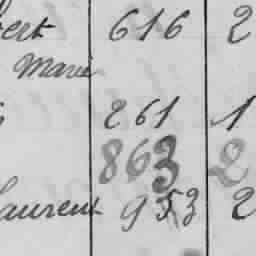 bert 616 2
Marie
261 1
863 2
Laurent 953 2